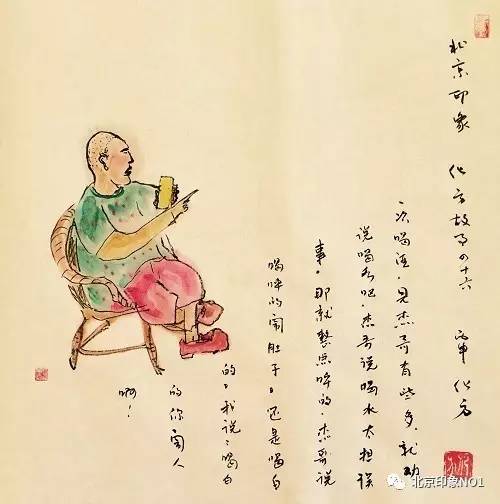 北京印象 化方故事四十六 丙申 化方
一次喝酒,见杰哥有些多,就劝
说喝水吧,杰哥说喝水太担误
事,那就整点啤的,杰哥说
喝啤的闹肚子,还是喝白
的,我说:喝白
的你闹人
啊!
北京印象NO1